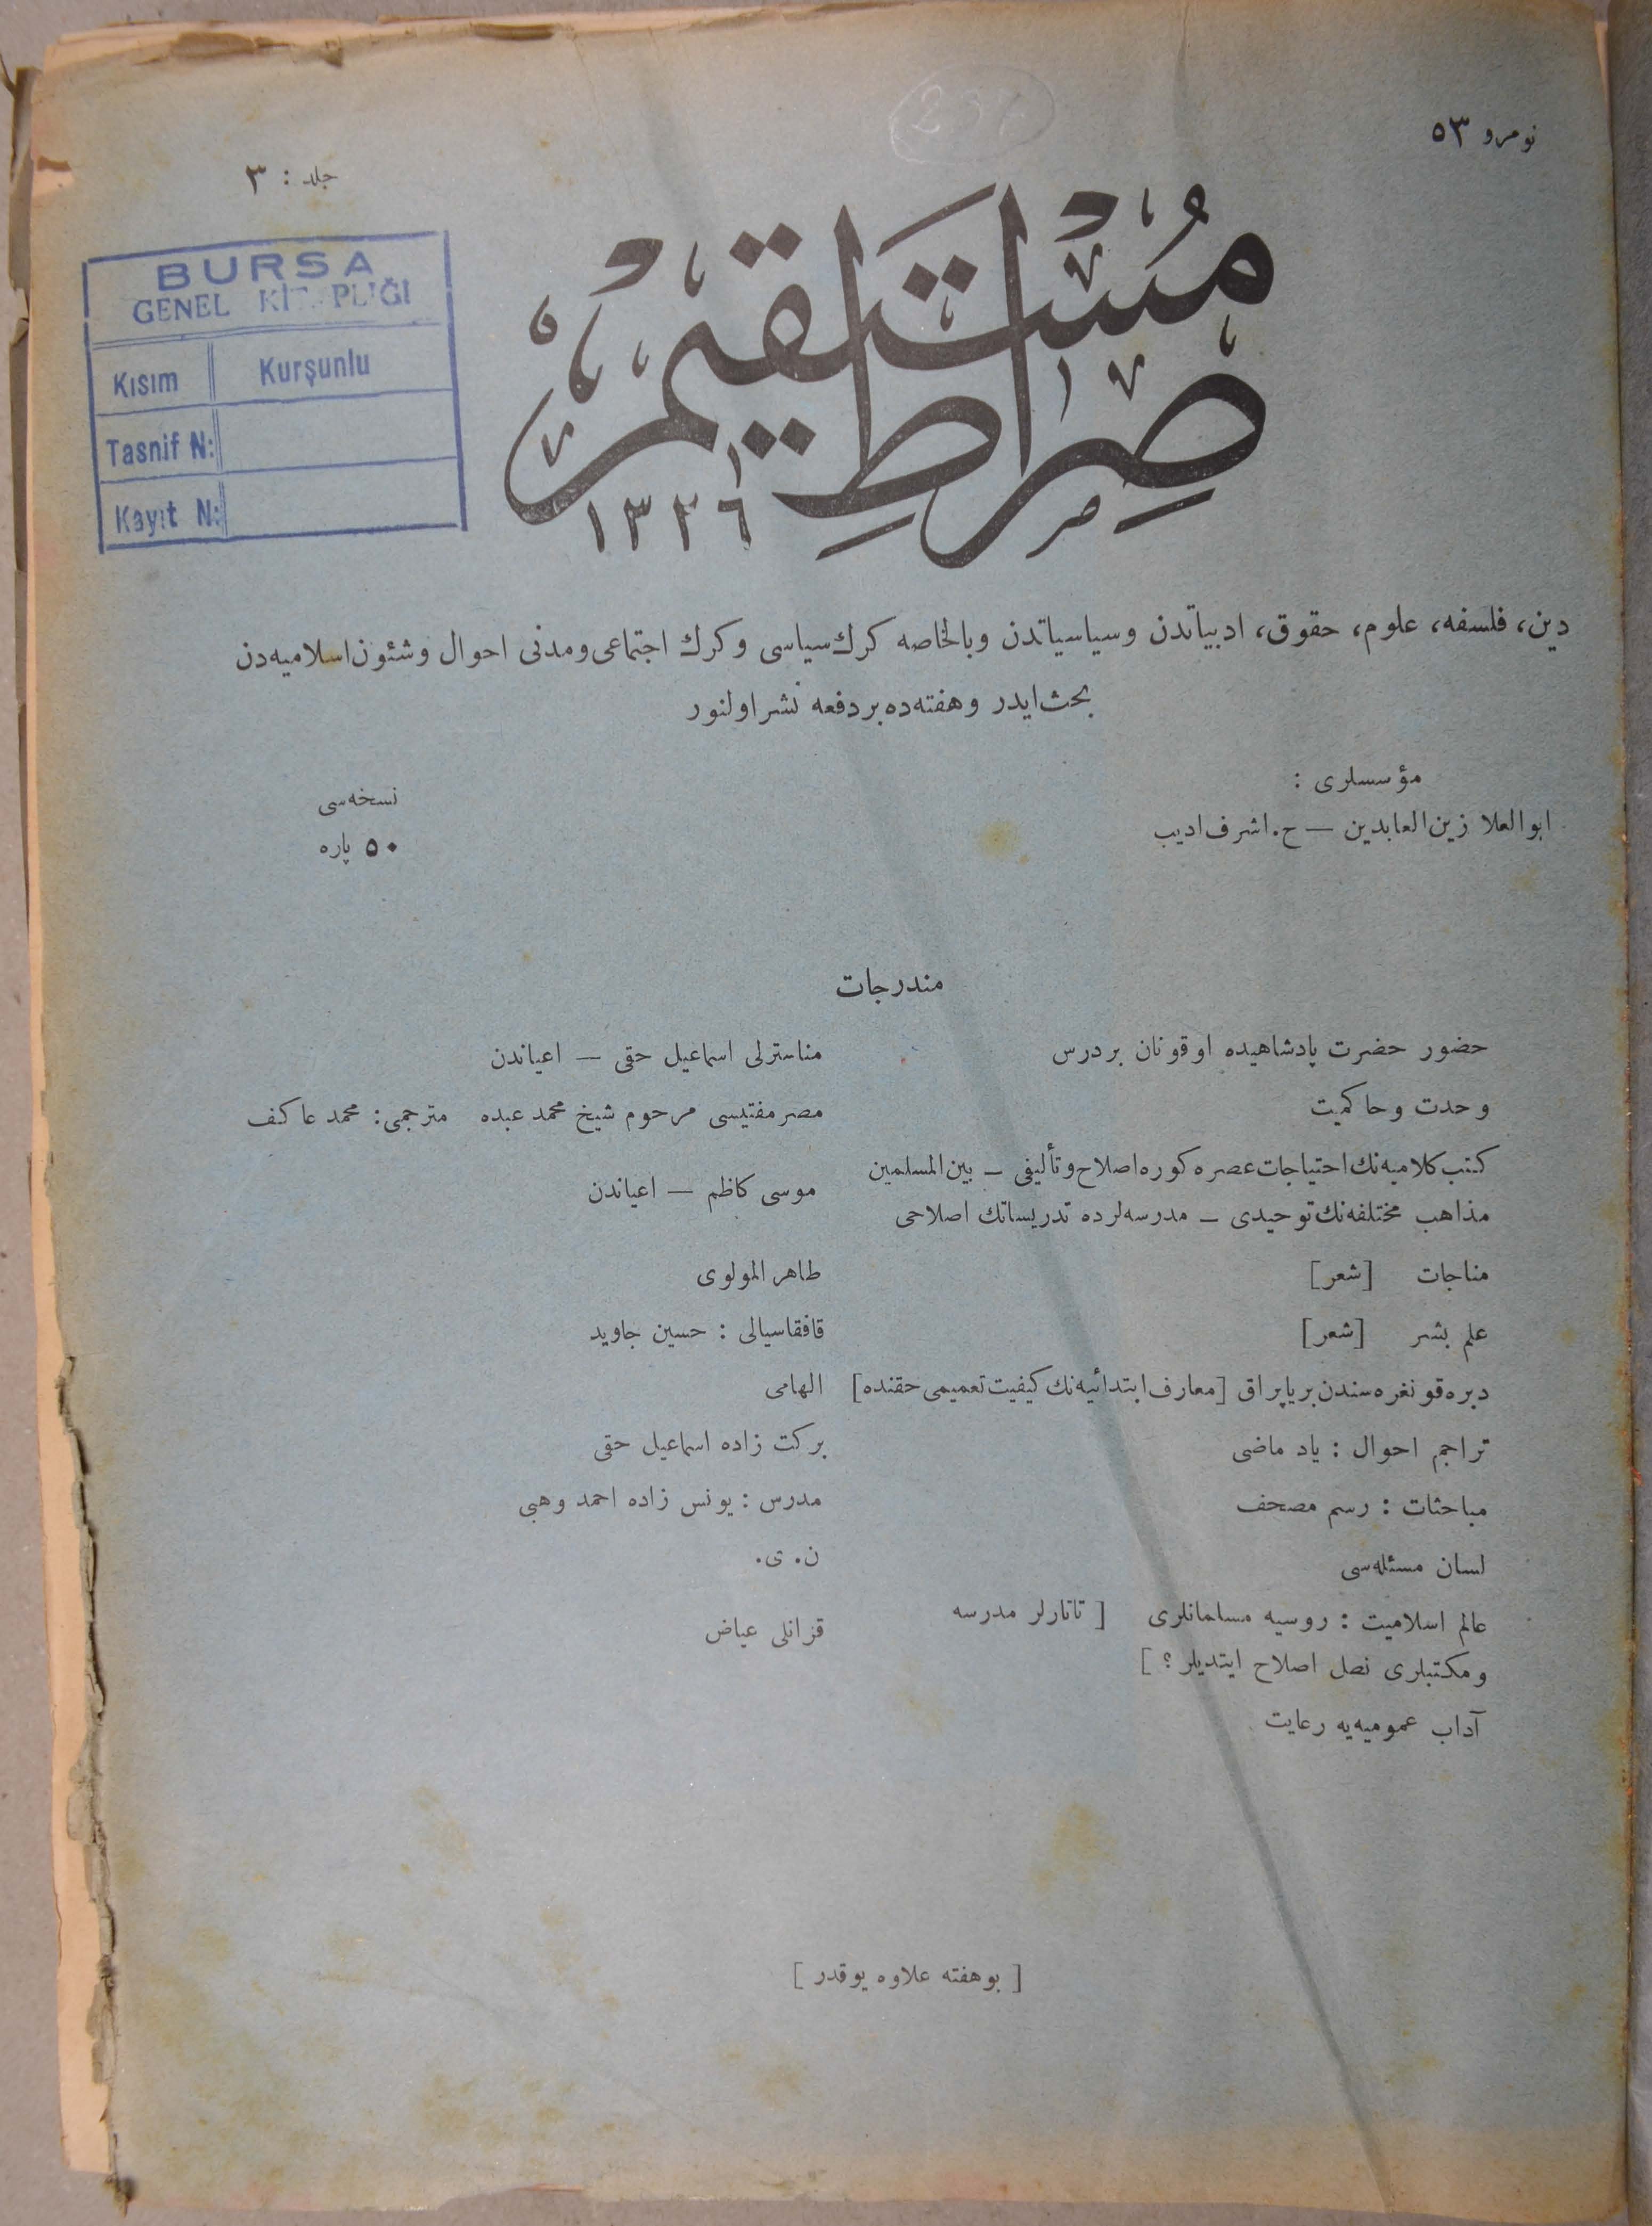 نومرو ٥٣
جلد : ٣
صِراطِ مُستقيم
١٣٢٦
BURSA
GENEL KİTAPLIĞI
Kısım Kurşunlu
Tasnif N:
Kayıt N:
دين، فلسفه، علوم، حقوق، ادبياتدن وسياسياتدن وبالخاصه كرك سياسى وكرك اجتماعى ومدنى احوال وشئون اسلاميه‌دن
بحث ايدر وهفته‌ده بر دفعه نشر اولنور
مؤسسلرى :
ابوالعلا زين العابدين — ح. اشرف اديب
نسخه‌سى
٥٠ پاره
مندرجات
حضور حضرت پادشاهيده اوقونان بر درس مناسترلى اسماعيل حقى — اعياندن
وحدت وحاكميت مصر مفتيسى مرحوم شيخ محمد عبده مترجمى : محمد عاكف
كتب كلاميه‌نك احتياجات عصره كوره اصلاح وتأليفى — بين المسلمين
مذاهب مختلفه‌نك توحيدى — مدرسه‌لرده تدريساتك اصلاحى موسى كاظم — اعياندن
مناجات [شعر] طاهر المولوى
علم بشر [شعر] قافقاسيالى : حسين جاويد
دبره قونغره‌سندن بر ياپراق [معارف ابتدائيه‌نك كيفيت تعميمى حقنده] الهامى
تراجم احوال : ياد ماضى بركت زاده اسماعيل حقى
مباحثات : رسم مصحف مدرس : يونس زاده احمد وهبى
لسان مسئله‌سى ن. ى.
عالم اسلاميت : روسيه مسلمانلرى [ تاتارلر مدرسه قزانلى عياض
ومكتبلرى نصل اصلاح ايتديلر ؟ ]
آداب عموميه‌يه رعايت
[ بو هفته علاوه يوقدر ]